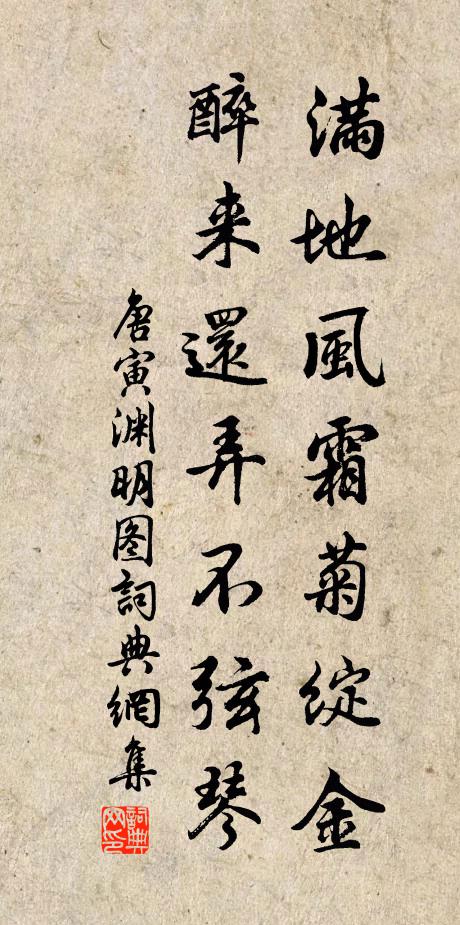 滿地風霜菊綻金
醉来還弄不弦琴
唐寅渊明图詞典網集
詞典网印